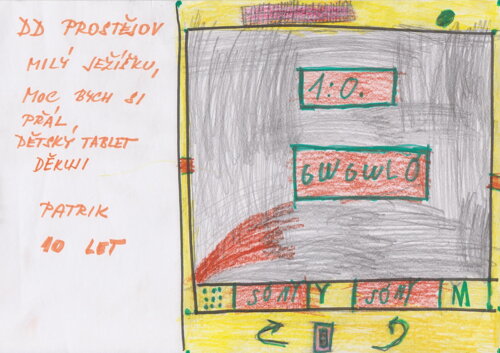 DD PROSTĚJOV
MILÝ JEŽÍŠKU,
MOC BYCH SI
PŘÁL,
DĚTSKÝ TABLET
DĚKUJI
PATRIK
10 LET
1:0.
GWGWLO
SONY Y SONY M